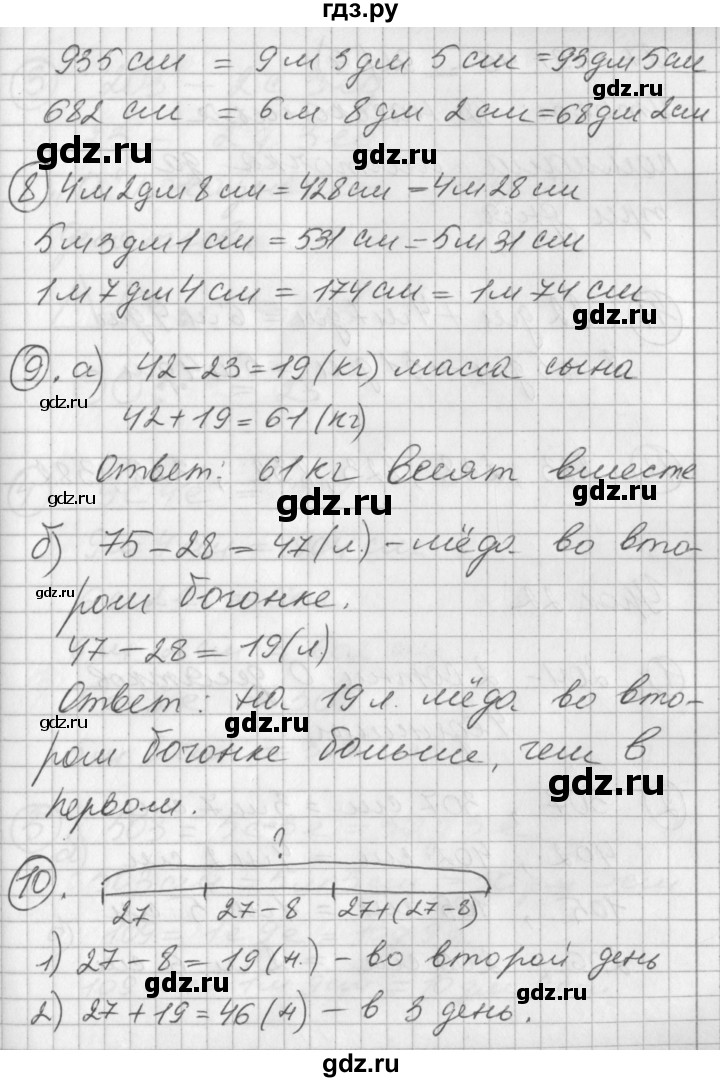 гдз.ру
935 см = 9 м 3 дм 5 см = 93 дм 5 см
gdz.ru
682 см = 6 м 8 дм 2 см = 68 дм 2 см
gdz.ru gdz.ru
8 4 м 2 дм 8 см = 428 см = 4 м 28 см
5 м 3 дм 1 см = 531 см = 5 м 31 см
1 м 7 дм 4 см = 174 см = 1 м 74 см
gdz.ru
9. а) 42 - 23 = 19 (кг) масса сына
gdz.ru
42 + 19 = 61 (кг)
Ответ: 61 кг весят вместе
gdz.ru gdz.ru gdz.ru
б) 75 - 28 = 47 (л.) - мёда во вто-
gdz.ru
ром богонке. gdz.ru
47 - 28 = 19 (л)
Ответ: на 19 л. мёда во вто-
gdz.ru gdz.ru
ром богонке больше, чем в
gdz.ru
первом.
?
10.
27 27 - 8 27 + (27 - 8)
1) 27 - 8 = 19 (н.) - во второй день
gdz.ru gdz.ru
2) 27 + 19 = 46 (н) - в 3 день.
gdz.ru
gdz.ru